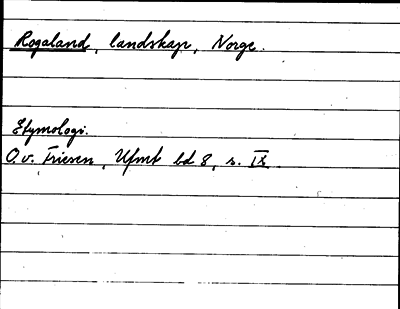 Rogaland, landskap, Norge.
Etymologi.
O. v. Friesen, Ufmt bd 8, s. IX